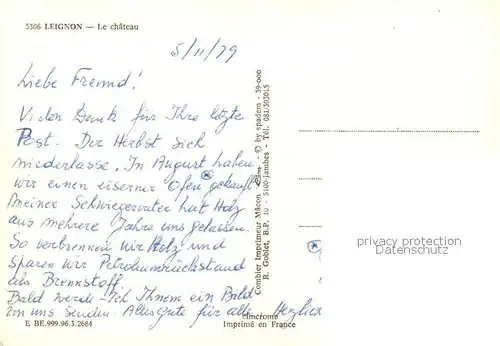 5306 LEIGNON — Le château
5/11/79
Liebe Freund!
Vielen Dank für Ihre letzte
Post. Der Herbst sich
niederlasse. In August haben
wir einen eiserner Ofen gekauft
Meiner Schwiegervater hat Holz
aus mehrere Jahre uns gelassen.
So verbrennen wir Holz und
sparen wir Petroleumrückstand
als Brennstoff.
Bald werde ich Ihnen ein Bild
von uns senden. Alles Gute für alle. Herzlich
Combier Imprimeur Mâcon © by spadem - 39-000
R. Goblet, B.P. 10 - 5100-Jambes - Tél. 081/303015
privacy protection
Datenschutz
E BE.999.96.3.2684
Cimcrome
Imprimé en France